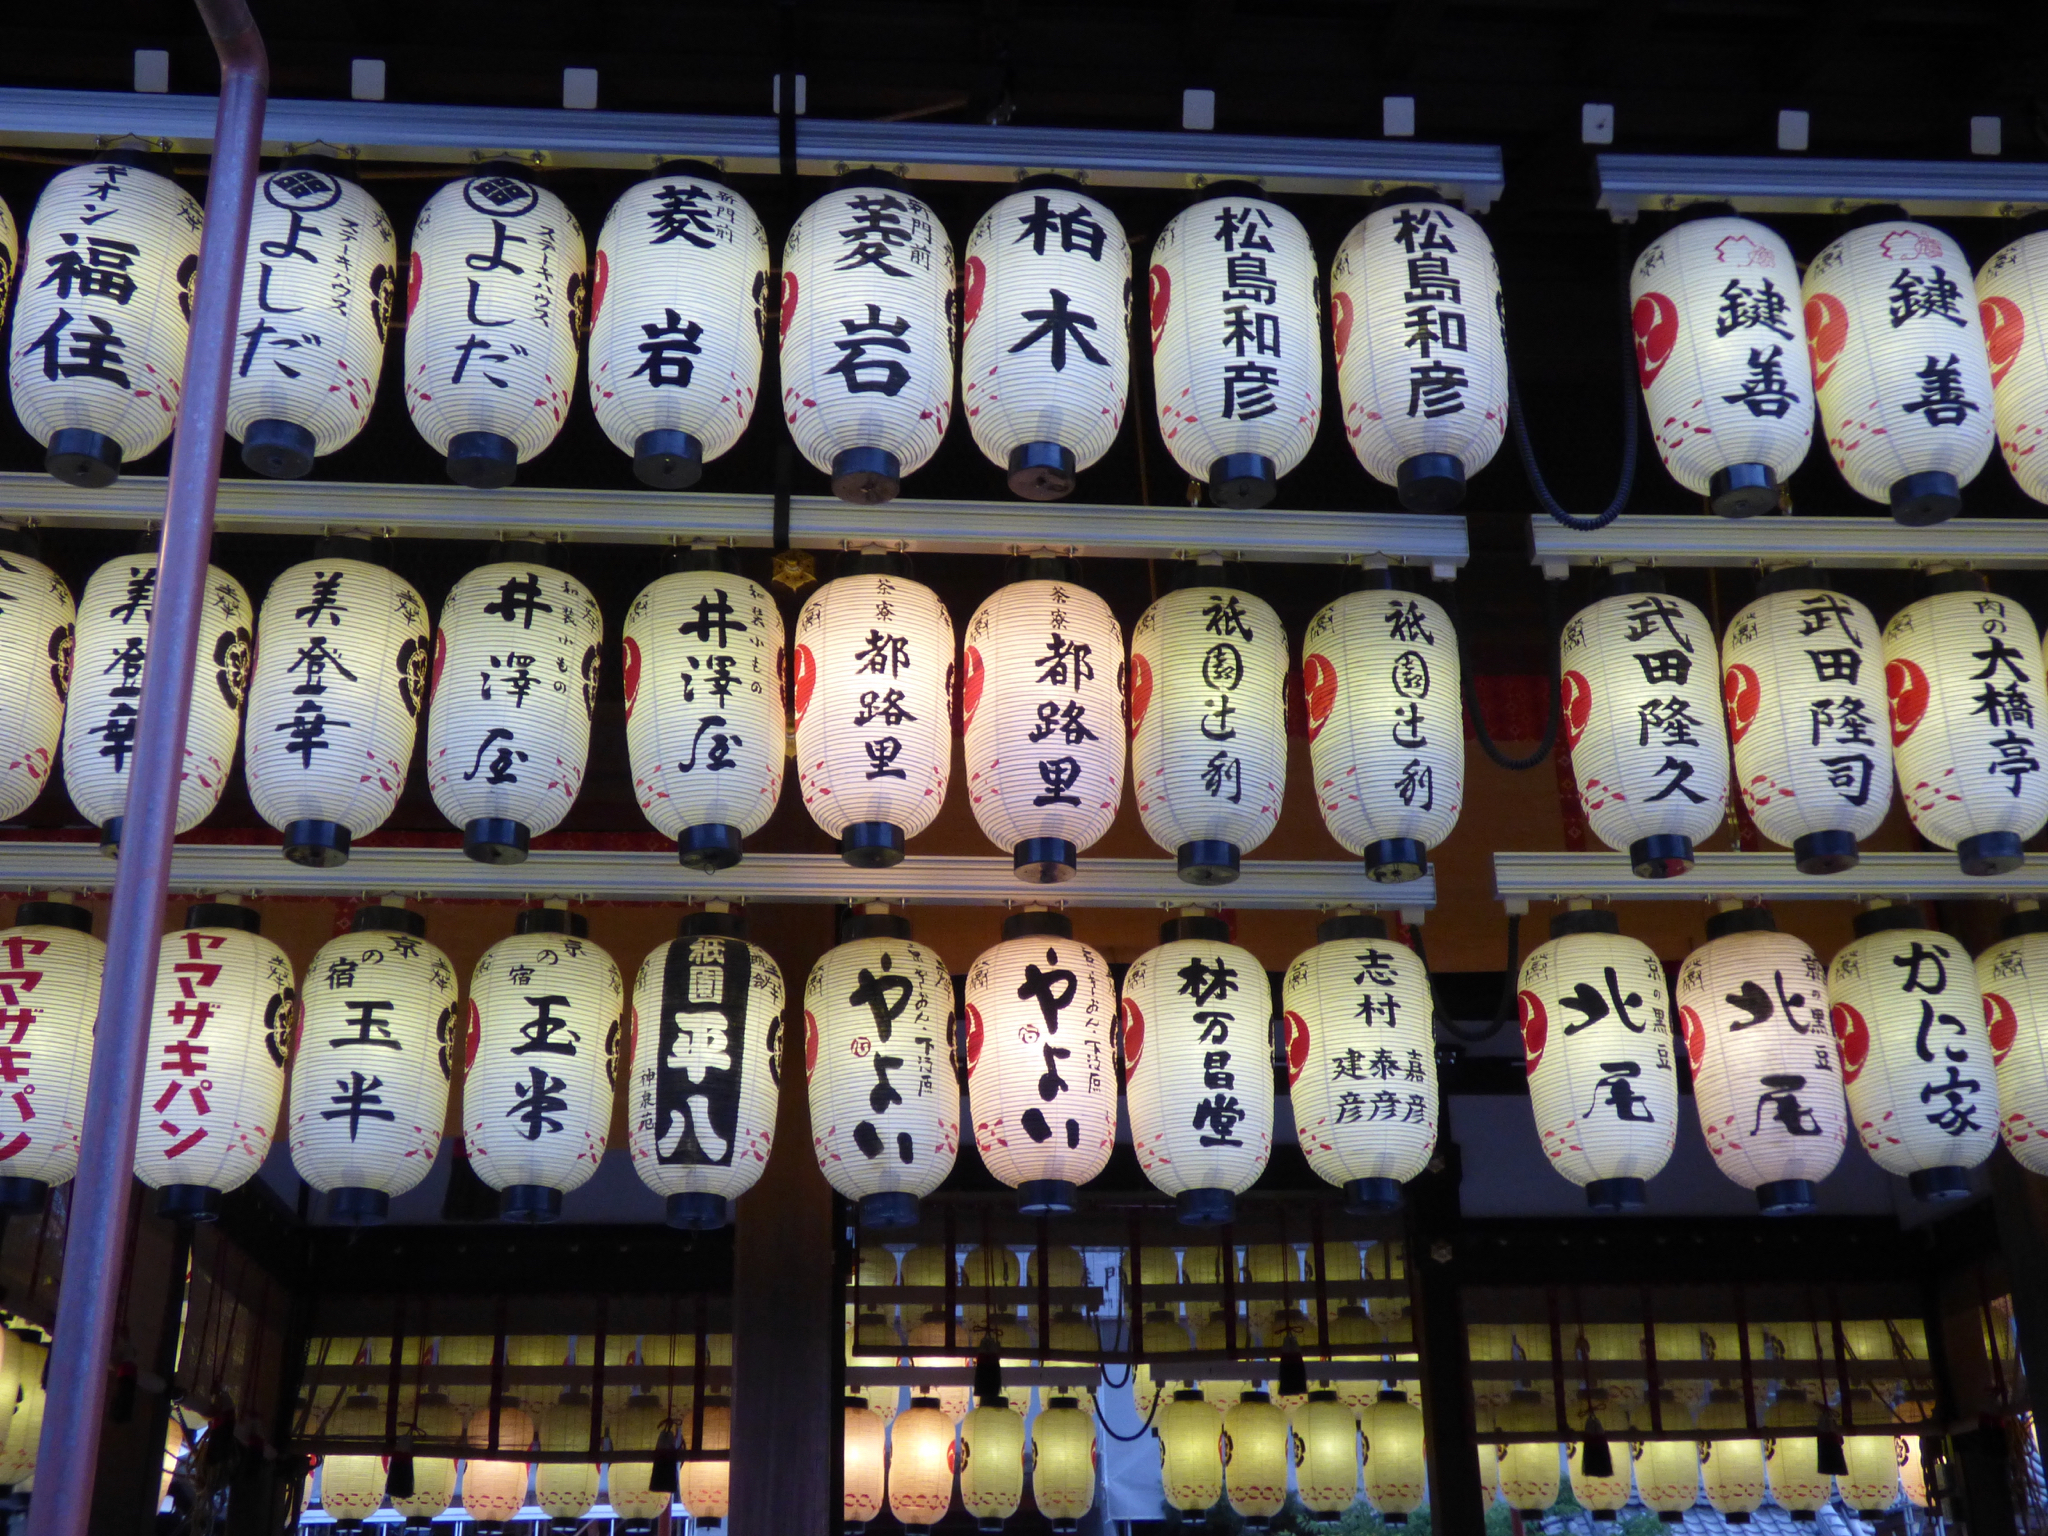 ギオン
福住
ステーキハウス
よしだ
ステーキハウス
よしだ
新門前
菱岩
新門前
菱岩
柏木
松島和彦
松島和彦
鍵善
鍵善
美登幸
美登幸
和装小もの
井澤屋
和装小もの
井澤屋
茶寮
都路里
茶寮
都路里
祇園辻利
祇園辻利
武田隆久
武田隆司
肉の
大橋亭
ヤマザキパン
ヤマザキパン
京の宿
玉半
京の宿
玉半
祇園
平八
神泉苑
やよい
やよい
林万昌堂
志村
嘉彦
泰彦
建彦
京の黒豆
北尾
京の黒豆
北尾
かに家